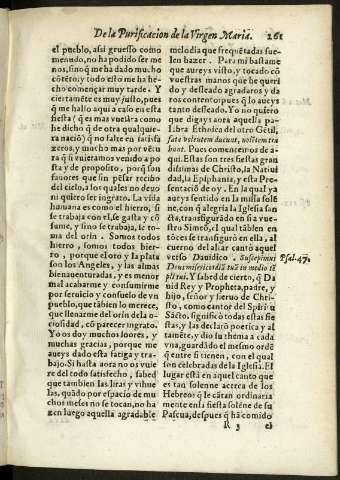 De la Purificacion de la Virgen Maria. 261
el pueblo, assi gruesso como
menudo, no ha podido ser me
nos, sino q̃ me ha dado mucho
cõtẽto; y todo esto me ha he-
cho començar muy tarde. Y
ciertamẽte es muy justo, pues
q̃ me hallo aqui a caso en esta
fiesta (q̃ es mas vuestra como
he dicho q̃ de otra qualque-
ra naciõ) q̃ no falte en satisfa
zeros, y mucho mas por vẽtu
ra q̃ si vuietamos venido a po
sta y de proposito, porq̃ son
fauores que sin pẽsar recibo
del cielo, a los quales no deuo
ni quiero ser ingrato. La vida
humana es como el hierro, si
se trabaja con el, se gasta y cõ
sume, y sino se trabaja, le to-
ma del orin. Somos todos
hierro, somos todos hier-
ro, porque el oro y la plata
son los Angeles, y las almas
bienauenturadas, y es menor
mal acabarme y consumirme
por seruicio y consuelo de vn
pueblo, que tãbien lo merece,
que llenarme del orin de la o-
ciosidad, cõ parecer ingrato.
Yo os doy muchos loores, y
muchas gracias, porque me
aueys dado esta fatiga y tra-
bajo. Si hasta aora no os vuie
re del todo satisfecho, sabed
que tambien las liras y vihue
las, quãdo por espacio de mu
chos meses no se tocan, no ha
zen luego aquella agradable
melodia que frequẽtadas sue-
len hazer. Para mi bastame
que aureys visto, y tocado cõ
vuestras manos que he queri
do y desseado agradaros y da
ros contẽto pues q̃ lo aueys
tanto desseado. Yo no quiero
que digays aora aquella pa-
labra Ethnica del otro Gẽtil,
fata volentem ducunt, nolẽtem tra
hunt. Pues comencemos de a-
qui. Estas son tres fiestas gran
dissimas de Christo, la Natiui
dad, la Epiphania, y esta Pre-
sentaciõ de oy. En la qual ya
aureys sentido en la missa solẽ
ne, con q̃ alegria la Iglesia san
cta, transfigurado en si a vue-
stro Simeõ, el qual tambien en
tõces se transfiguro en ella, al
derredor del altar cantò aquel
verso Dauidico. Suscepimus Psal. 47.
Deus misericordiã tuã in medio tẽ
pli tui. Y sabed de cierto, q̃ Da
uid Rey y Propheta, padre, y
hijo, señor y sieruo de Chris-
to, como cantor del Spiritu
Sãcto, significò todas estas fie-
stas, y las declarò poetica y al
tamẽte, y dio su thema a cada
vna, guardãdo el mesmo ordẽ
q̃ entre si tienen, con el qual
son celebradas de la Iglesia. El
lugar està en aquel canto que
es tan solenne acerca de los
Hebreos q̃ le cãtan ordinaria
mente en la fiesta solẽne de su
Pascua, despues q̃ hã comido
R 3 el